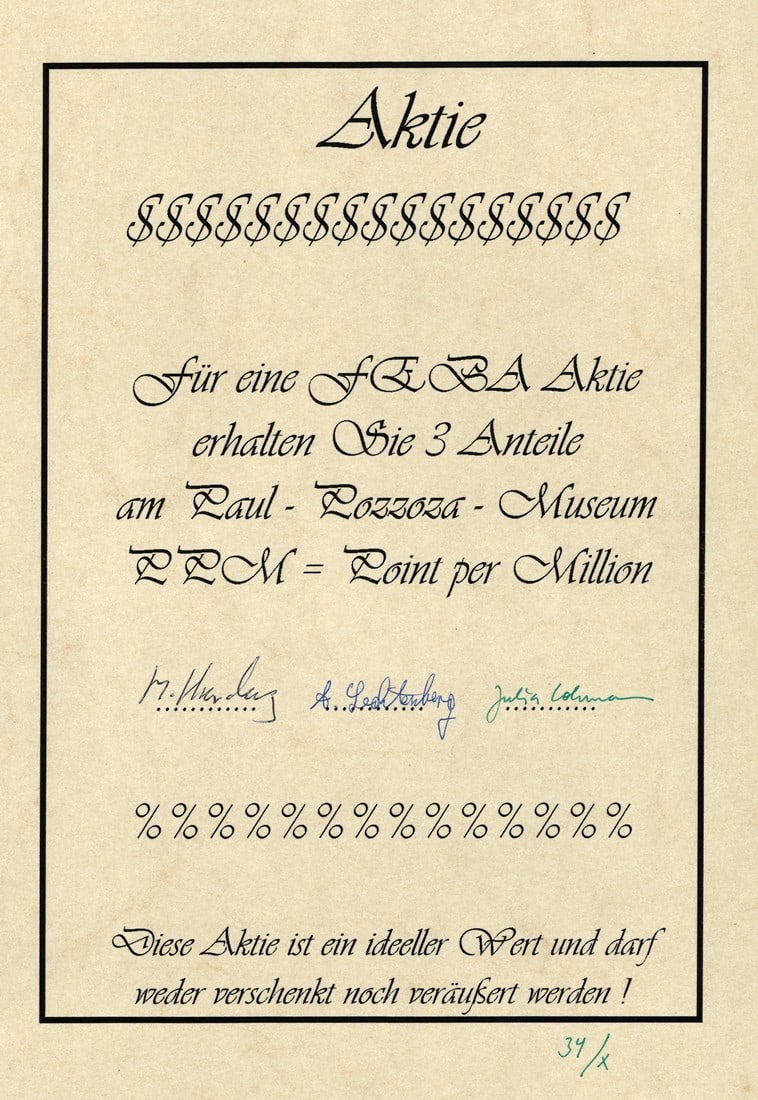 Aktie
§§§§§§§§§§§§§§§§§
Für eine FEBA Aktie
erhalten Sie 3 Anteile
am Paul - Pozzoza - Museum
PPM = Point per Million
A. Lechtenberg Julia Lohmann
% % % % % % % % % % % % % %
Diese Aktie ist ein ideeller Wert und darf
weder verschenkt noch veräußert werden !
34/x